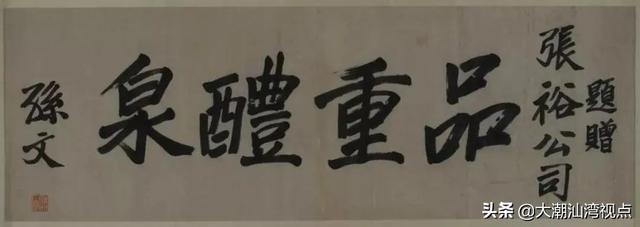 題贈
張裕公司
品重醴泉
孫文
头条 @大潮汕湾视点